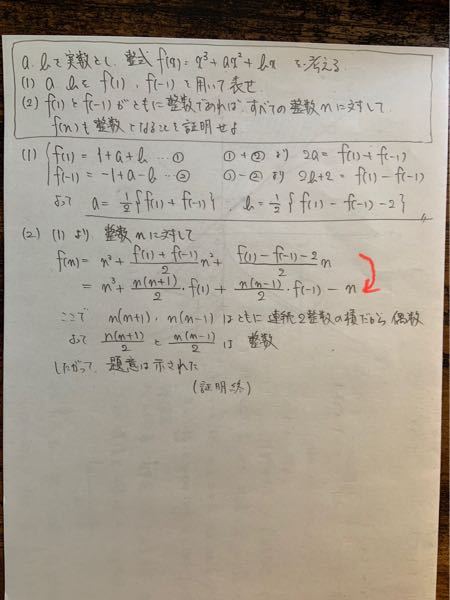 a, bを実数とし、整式 f(x) = x³ + ax² + bx を考える.
(1) a, bを f(1), f(-1) を用いて表せ
(2) f(1)とf(-1)がともに整数であれば、すべての整数nに対して、
f(n)も整数となることを証明せよ
(1) { f(1) = 1+a+b …① ①+②より 2a = f(1)+f(-1)
f(-1) = -1+a-b …② ①-②より 2b+2 = f(1)-f(-1)
よって a = 1/2 { f(1)+f(-1) } , b = 1/2 { f(1)-f(-1)-2 } 〃
(2) (1)より 整数nに対して
f(n) = n³ + (f(1)+f(-1))/2 n² + (f(1)-f(-1)-2)/2 n
= n³ + n(n+1)/2 · f(1) + n(n-1)/2 · f(-1) - n
ここで n(n+1), n(n-1)はともに連続2整数の積だから、偶数
よって n(n+1)/2 と n(n-1)/2 は 整数
したがって、題意は示された
(証明終)